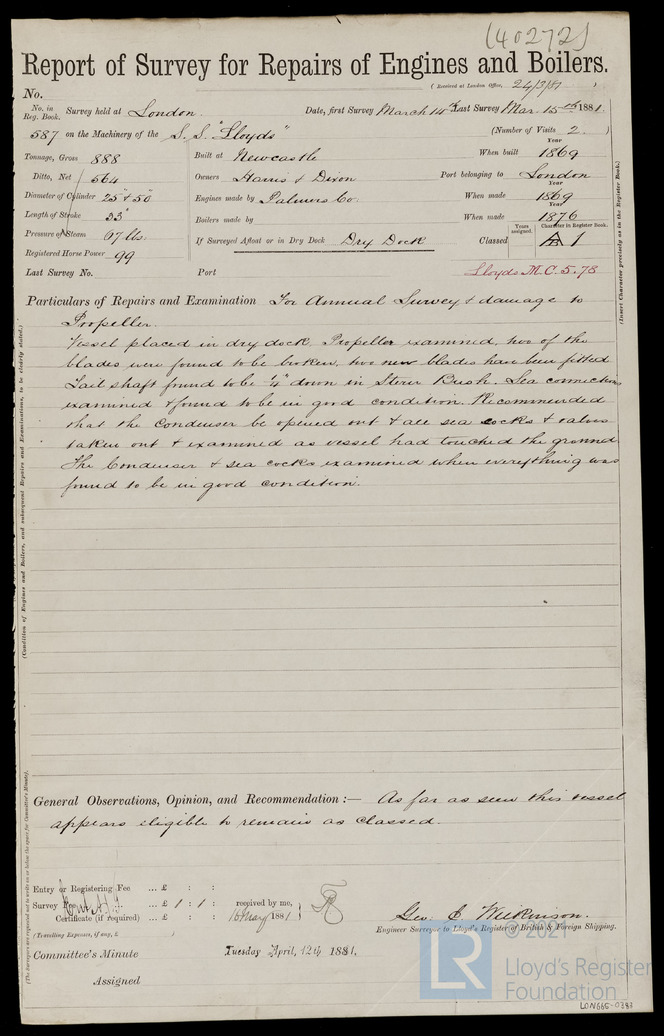 (40272)
Report of Survey for Repairs of Engines and Boilers.
(Received at London Office, 24/3/81 )
No.
No. in Reg. Book. Survey held at London. Date, first Survey March 14th Last Survey Mar. 15th 1881.
587 on the Machinery of the S.S. "Lloyds" (Number of Visits 2 )
Tonnage, Gross 888 Built at Newcastle When built Year 1869
Ditto, Net 564 Owners Harris & Dixon Port belonging to London
Diameter of Cylinder 25" & 50" Engines made by Palmers Co. When made Year 1869
Length of Stroke 33" Boilers made by When made Year 1876
Pressure of Steam 67 lbs. If Surveyed Afloat or in Dry Dock Dry Dock Classed Years assigned. Character in Register Book. 1
Registered Horse Power 99
Last Survey No. Port Lloyds M.C. 5.78
Particulars of Repairs and Examination For Annual Survey & damage to
Propeller.
Vessel placed in dry dock. Propeller examined, two of the
blades were found to be broken, two new blades have been fitted
Tail shaft found to be 1/4" down in Stern Bush. Sea connections
examined & found to be in good condition. Recommended
that the Condenser be opened out & all sea cocks & valves
taken out & examined as vessel had touched the ground
The Condenser & sea cocks examined when everything was
found to be in good condition.
General Observations, Opinion, and Recommendation :— As far as seen this vessel
appears eligible to remain as classed.
Entry or Registering Fee ... £ : :
Survey Fee ... £ 1 : 1 : received by me,
Certificate (if required) ... £ : : 16 May 1881
(Travelling Expenses, if any, £ )
Geo. C. Wilkinson.
Engineer Surveyor to Lloyd's Register of British & Foreign Shipping.
Committee's Minute Tuesday April, 12th 1881,
Assigned
(Insert Character precisely as in the Register Book.)
(Condition of Engines and Boilers, and subsequent Repairs and Examinations, to be clearly stated.)
(The Surveyors are requested not to write on or below the space for Committee's Minute).
LR
© 2021
Lloyd's Register
Foundation
LON665-0383